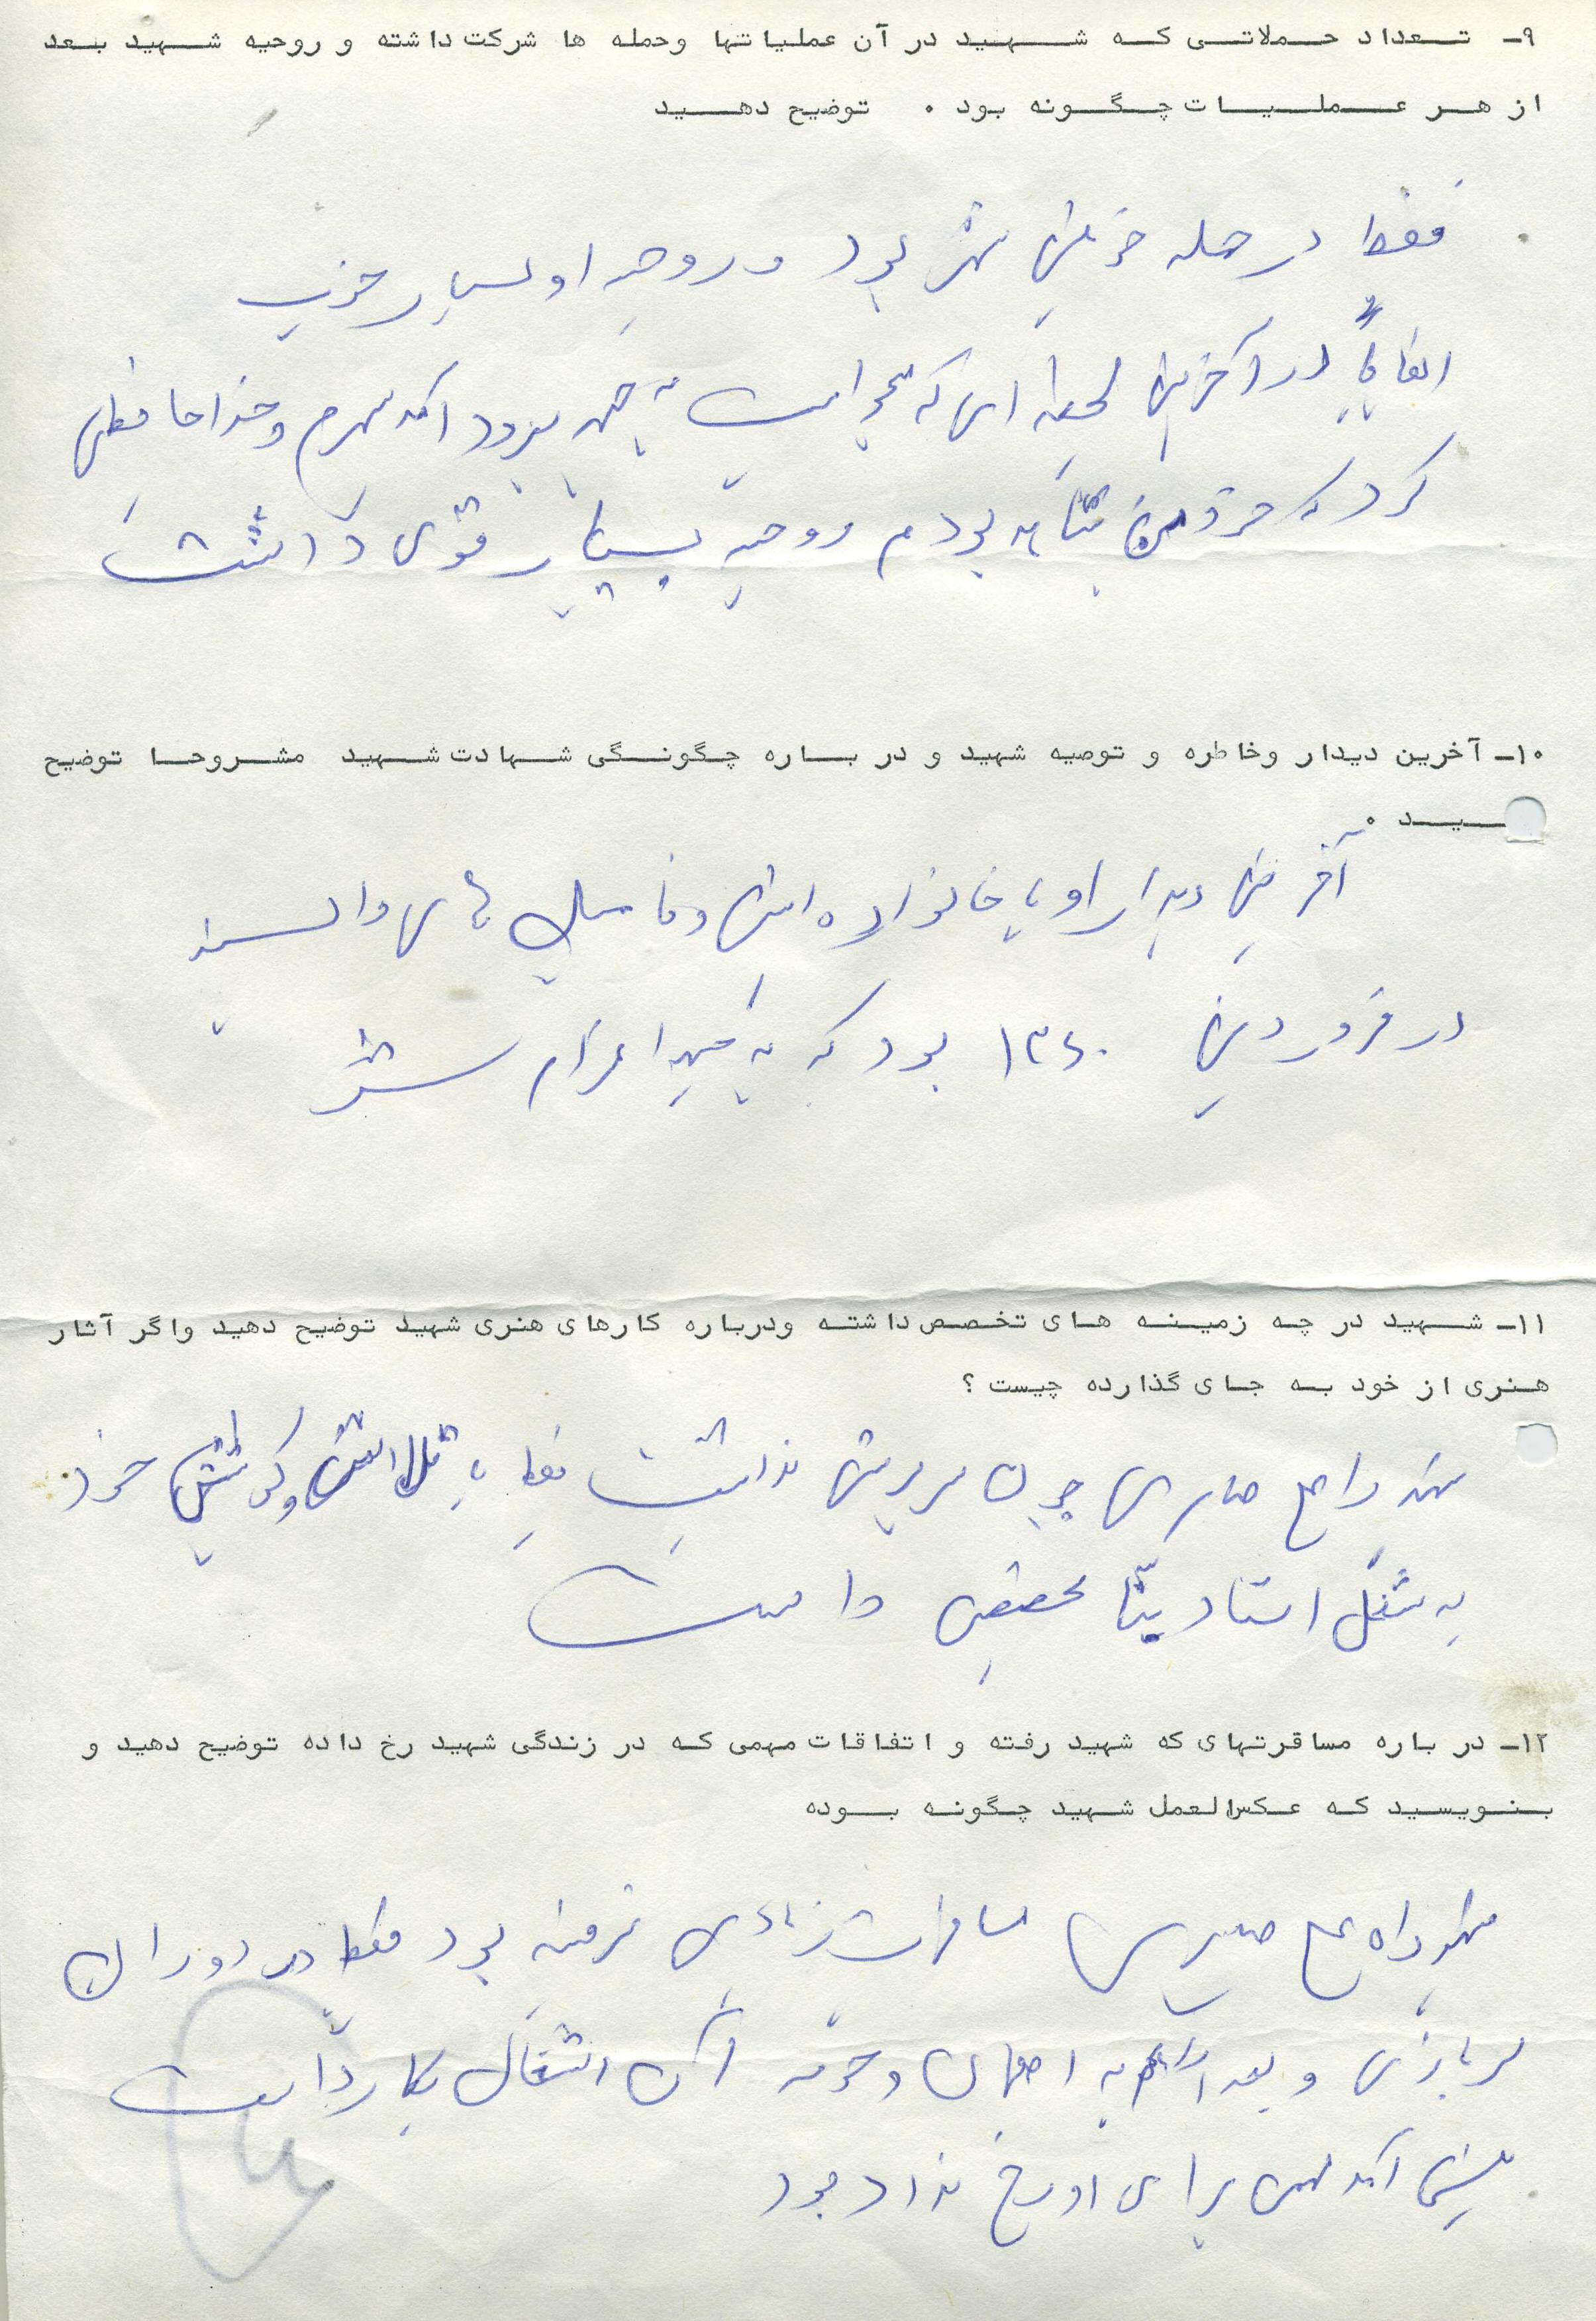 ۹- تعداد حملاتی که شهید در آن عملیاتها وحمله ها شرکت داشته و روحیه شهید بعد
از هر عملیات چگونه بود . توضیح دهید
فقط در حمله خرمشهر بود و روحیه او بسیار خوب
اتفاقاً در آخرین لحظه ای که میخواست به جبهه برود آمد و خداحافظی
کرد که خود من بودم روحیه بسیار قوی داشت
۱۰- آخرین دیدار وخاطره و توصیه شهید و در باره چگونگی شهادت شهید مشروحا توضیح
ید .
آخرین دیدار او با خانواده اش و فامیل های وابسته
در فروردین ۱۳۶۰ بود که به جبهه اعزام شد
۱۱- شهید در چه زمینه های تخصص داشته ودرباره کارهای هنری شهید توضیح دهید واگر آثار
هنری از خود به جای گذارده چیست ؟
شهید چون سرپرستی نداشت فقط با تلاش و کوشش خود
به شغل استاد بنا تخصصی داشت
۱۲- در باره مسافرتهای که شهید رفته و اتفاقات مهمی که در زندگی شهید رخ داده توضیح دهید و
بنویسید که عکس العمل شهید چگونه بوده
شهید مسافرت زیادی نرفته بود فقط در دوران
سربازی و بعد به اصفهان و حومه آن اشتغال بکار داشت
پیش آمد مهمی برای او رخ نداده بود